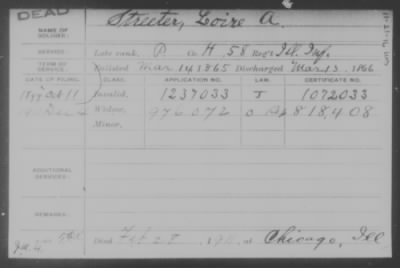 DEAD
NAME OF SOLDIER: Streeter, Loire A.
SERVICE: Late rank, P Co. H 58 Reg't Ill. Inf.
TERM OF SERVICE: Enlisted Mar. 14 1865 Discharged Mar 13 1866
DATE OF FILING. CLASS. APPLICATION NO. LAW. CERTIFICATE NO.
Oct 11 Invalid, 1237033 J 1072033
Dec Widow, 976072 818,408
Minor,
ADDITIONAL SERVICES:
REMARKS:
Died Feb 28 at Chicago, Ill